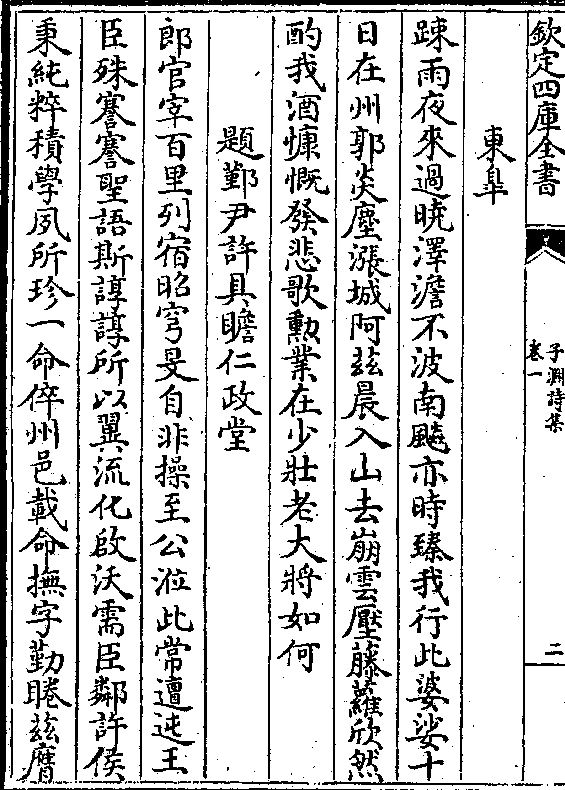 欽定四庫全書
子淵詩集
卷一
二
東臯
踈雨夜來過曉澤澹不波南颸亦時臻我行此婆娑十
日在州郭炎塵漲城阿茲晨入山去崩雲壓藤蘿欣然
酌我酒慷慨發悲歌勳業在少壯老大將如何
題鄞尹許具瞻仁政堂
郎官宰百里列宿昭穹旻自非操至公涖此常邅迍王
臣殊蹇蹇聖語斯諄諄所以翼流化啟沃需臣鄰許侯
秉純粹積學夙所珍一命倅州邑載命撫字勤睠茲膺